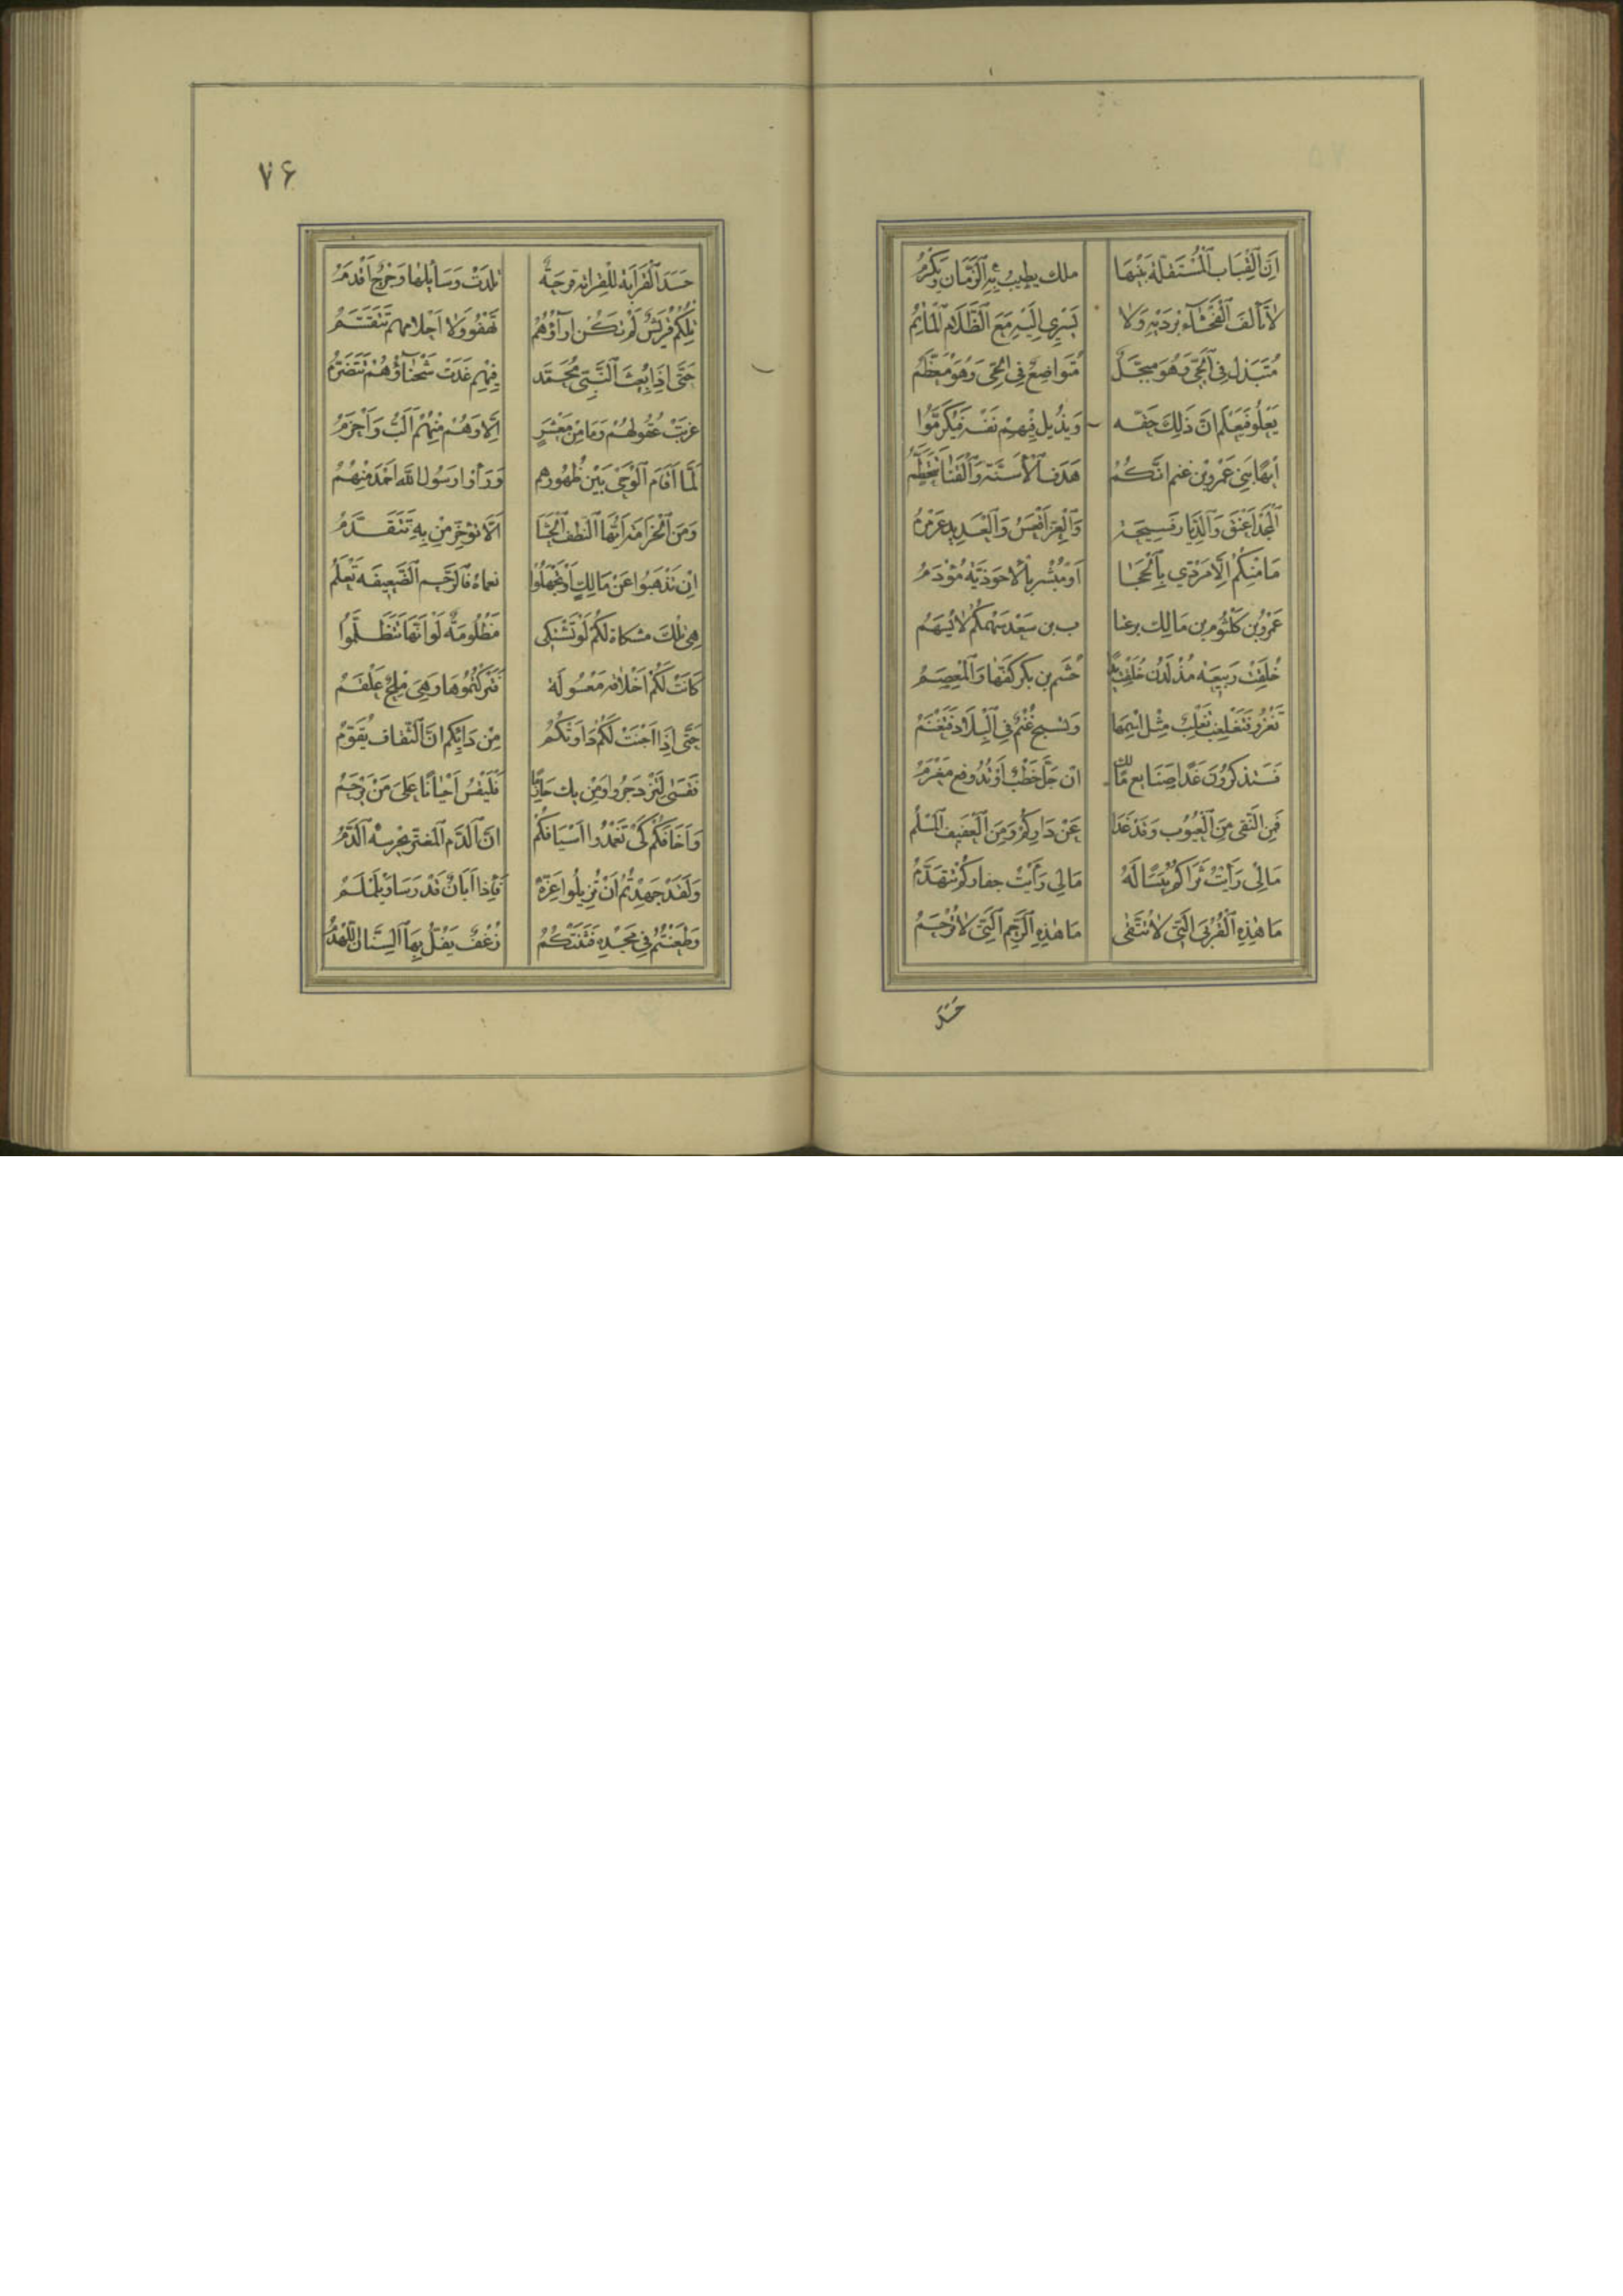 اَنَّ الْقِبَابَ الْمُسْتَقِلَّةَ بَيْنَهَا ملك يطيب بِهِ الزَّمَانُ وَيَكْرُمُ
لَا تَألَفُ الْفَحْشَاءُ بُرْدَيْهِ وَلَا يَسْرِي اِلَيْهِ مَعَ الظَّلَامِ الْمَأثَمُ
مُتَبَذِّلٌ فِي الْحَيِّ وَهُوَ مُبَجَّلٌ مُتَوَاضِعٌ فِي الْحَيِّ وَهُوَ مُعَظَّمُ
يَعْلُو فَيَعْلَمُ اَنَّ ذَلِكَ حَقُّه وَيُذِيلُ فِيهِمْ نَفْسَهُ فَيُكَرَّمُوا
اَيْهًا بَنِي عَمْرِو بْنِ غَنْمٍ اِنَّكُمُ هَدَفُ الْأَسِنَّةِ وَالْقَنَا يَتَحَطَّمُ
اَلْمَجْدُ اَعْنَقُ وَالدِّيَارُ فَسِيحَةٌ وَالْعِزُّ اَقْعَسُ وَالْعَدِيدُ عَرَمْرَمُ
مَا مِنْكُمْ اِلَّا مُرَدًّى بِالْحِجَا اَوْ مُبْشَرٌ بِالْأَحْوَذِيَّةِ مُؤْدَمُ
عَمْرُو بْنُ كُلْثُومِ بن مَالِك بن عتا ب بن سَعْد سَهْمُكُمْ لَا يُسْهَمُ
خُلِقَتْ رَبِيعَة مُذْ لَدُنْ خُلِقَتْ يَدًا جُشَم بن بَكْر كَفُّهَا وَالْمِعْصَمُ
تَغْزُو فَتَغْلِبُ تَغْلِبٌ مِثْلَ اسْمِهَا وَتَسِيحُ غَنْمٌ فِي الْبِلَادِ فَتَغْنَمُ
فَسَتَذْكُرُونَ غَدًا صَنَايِعَ مَالِكٍ اِنْ جَلَّ خَطْبٌ اَوْ تُدُوفِعَ مَغْرَمُ
فَمَنِ النَّقِيُّ مِنَ الْعُيُوبِ وَقَدْ غَدَا عَنْ دَارِكُمْ وَمَنِ الْعَفِيفُ الْمُسْلِمُ
مَالِي رَأَيْتُ ثَرَاكُمُ يَبَسًا لَهُ مَالِي رَأَيْتُ جِفَارَكُمْ تَتَهَدَّمُ
مَا هَذِهِ الْقُرْبَى الَّتِي لَا تُتَّقَى مَا هَذِهِ الرَّحِمُ الَّتِي لَا تُرْحَمُ
حَسَدَ
٧۶
حَسَدُ الْقَرَابَةِ لِلْقَرَابَةِ قَرْحَةٌ تَلِدَتْ وَسَائِلُهَا وَجُرْحٌ اَقْدَمُ
تِلْكُمْ قُرَيْشٌ لَمْ تَكُنْ اَرَاؤُهُمْ تَهْفُو وَلَا اَحْلَامُهُم تَتَقَسَّمُ
حَتَّى اِذَا بُعِثَ النَّبِيُّ مُحَمَّد فِيهِم غَدَتْ شَحْنَاؤُهُمْ تَتَضَرَّمُ
عَزَبَتْ عُقُولُهُمْ وَمَا مِنْ مَعْشَرٍ اِلَّا وَهُمْ مِنْهُمْ اَلَبُّ وَاَحْزَمُ
لَمَّا اَقَامَ الْوَحْيُ بَيْنَ ظُهُورِهِم وَرَأَوْا رَسُولَ اللهِ اَحْمَدَ مِنْهُمُ
وَمِنَ الْحَزَامَةِ لَوْ تَكُونُ حَزَامَةٌ اَلَّا تُؤَخِّرَ مَنْ بِهِ تَتَقَدَّمُ
اِنْ تَذْهَبُوا عَنْ مَالِكٍ اَوْ تَجْهَلُوا نُعْمَاهُ فَالرَّحِمُ الضَّعِيفَة تَعْلَمُ
هِيَ تِلْكَ مُشْكَاةٌ لَكُمْ لَوْ تَشْتَكِي مَظْلُومَةٌ لَوْ اَنَّهَا تَتَظَلَّمُ
كَانَتْ لَكُمْ اَخْلَاقُهُ مَعْسُولَةً فَتَرَكْتُمُوهَا وَهِيَ مِلْحٌ عَلْقَمُ
حَتَّى اِذَا اَجْنَتْ لَكُمْ دَاوَتْكُمُ مِنْ دَائِكُمْ اِنَّ الثِّقَافَ يُقَوِّمُ
فَقَسَى لِتَزْدَجِرُوا وَمَنْ يَكُ حَازِمًا فَلْيَقْسُ اَحْيَانًا عَلَى مَنْ يَرْحَمُ
وَاَخَافَكُمْ كَيْ تُغْمِدُوا اَسْيَافَكُمْ اِنَّ الدَّمَ الْمُغْتَرَّ يَحْرُسُهُ الدَّمُ
وَلَقَدْ جَهَدْتُمْ اَنْ تُزِيلُوا عِزَّهُ فَاِذَا اَبَانٌ قَدْ رَسَا وَيَلَمْلَمُ
وَطَعَنْتُمْ فِي مَجْدِهِ فَثَنَتْكُمُ زُغْفٌ يُفَلُّ بِهَا السِّنَانُ اللَّهْذَمُ